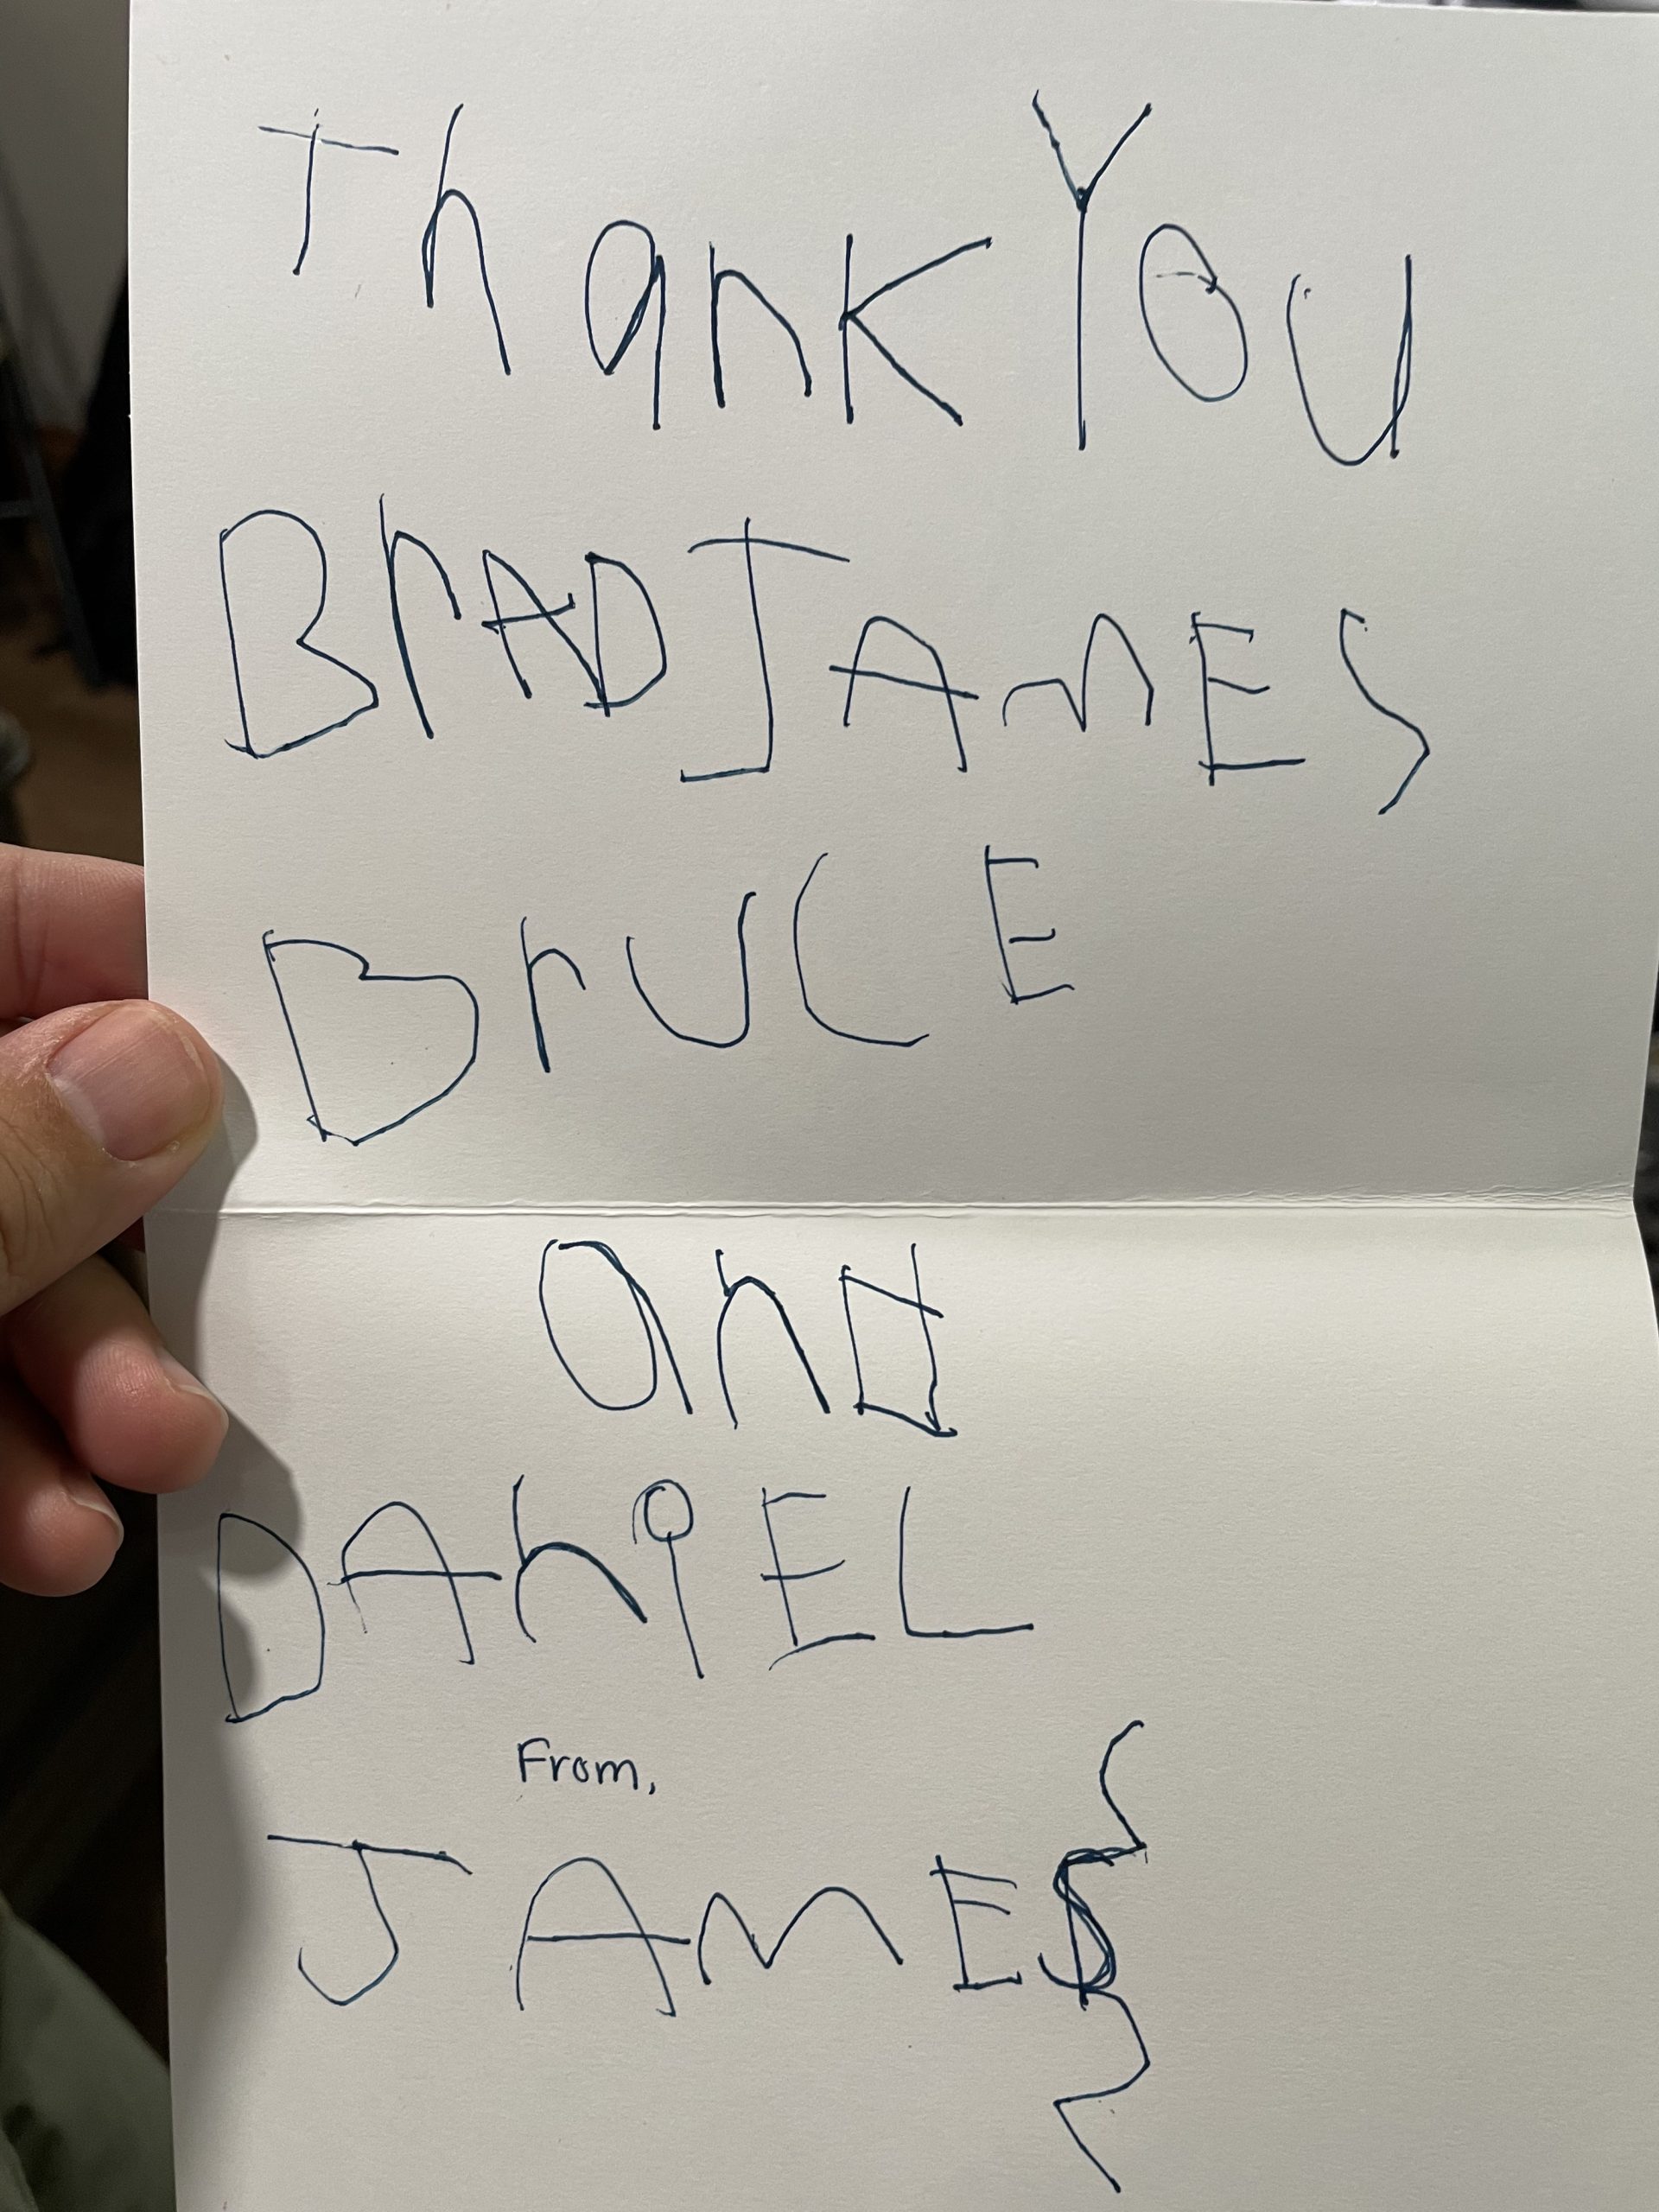 Thank You
BrAD JAmES
BrUCE
and
DAniEL
From,
JAmES